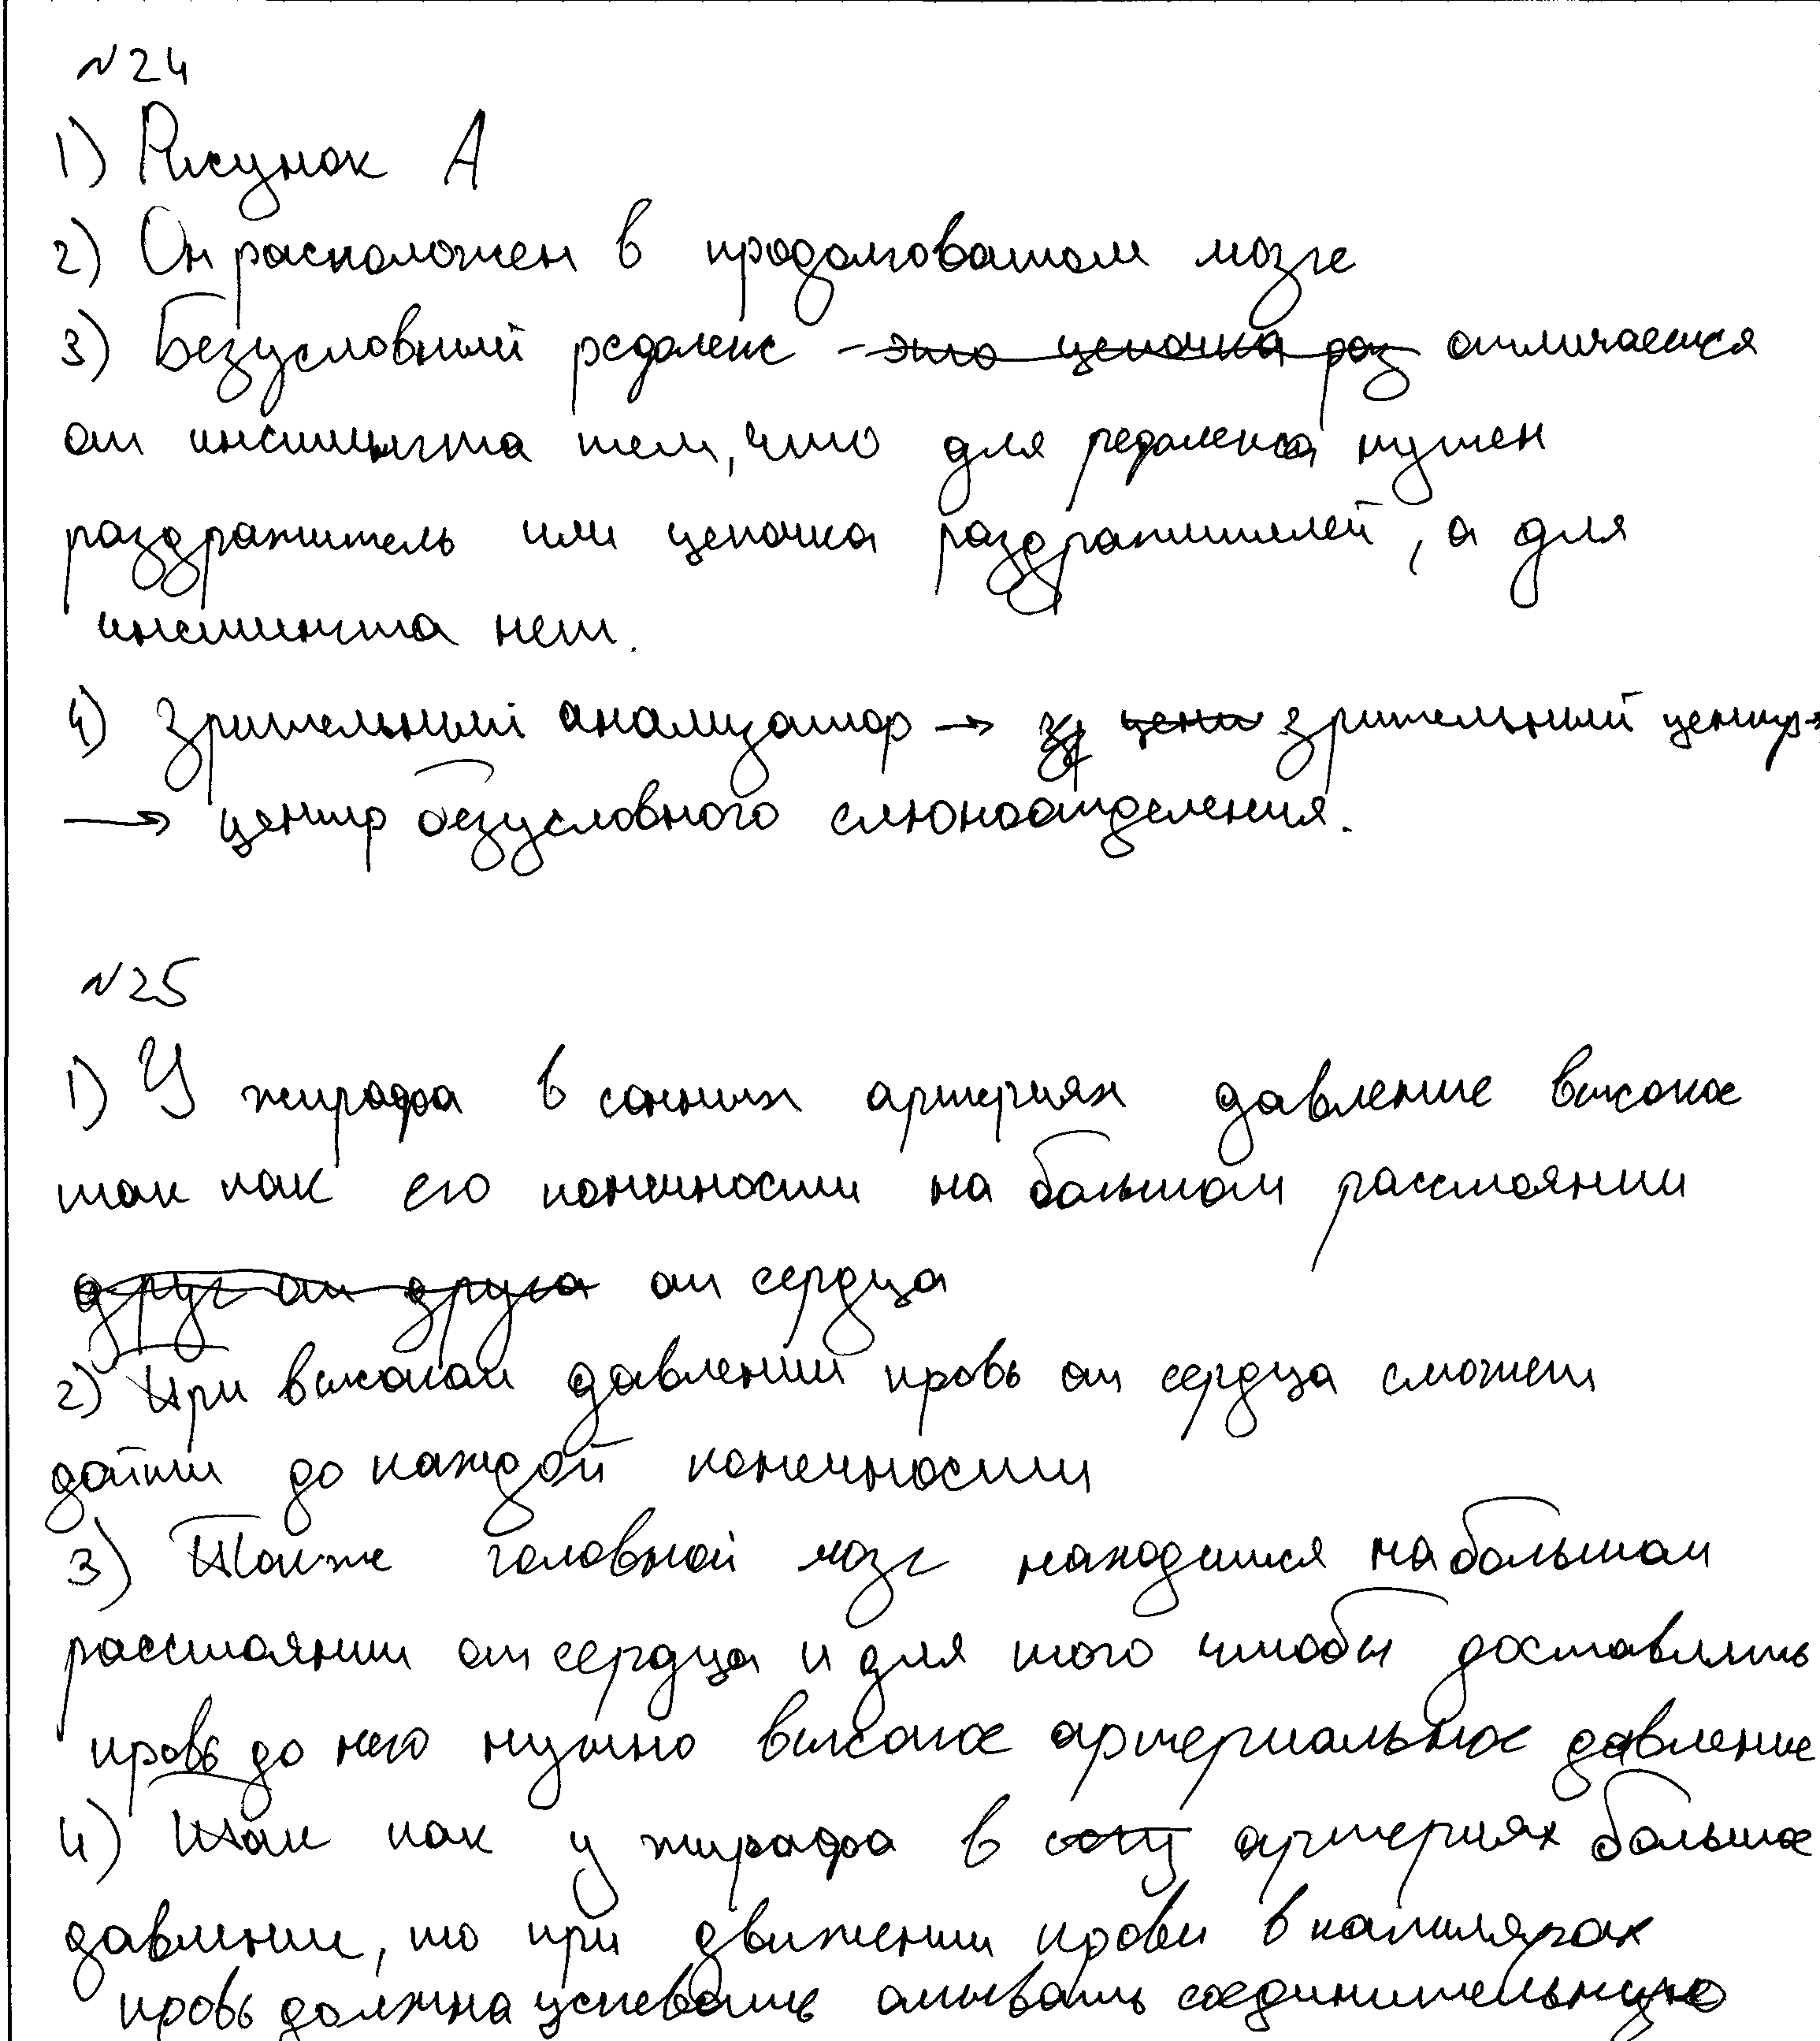 №24
1) Рисунок А
2) Он расположен в продолговатом мозге
3) Безусловный рефлекс - это цепочка раз отличается
от инстинкта тем, что для рефлекса нужен
раздражитель или цепочка раздражителей, а для
инстинкта нет.
4) Зрительный анализатор → зр цент зрительный центр →
→ центр безусловного слюноотделения.
№25
1) У жирафа в сонных артериях давление высокое
так как его конечности на большом расстоянии
друг от друга от сердца
2) При высоком давлении кровь от сердца сможет
дойти до каждой конечности
3) Также головной мозг находится на большом
расстоянии от сердца и для того чтобы доставлять
кровь до него нужно высокое артериальное давление
4) Так как у жирафа в артериях большое
давление, то при движении крови в капилярах
кровь должна успевать омывать соединительную